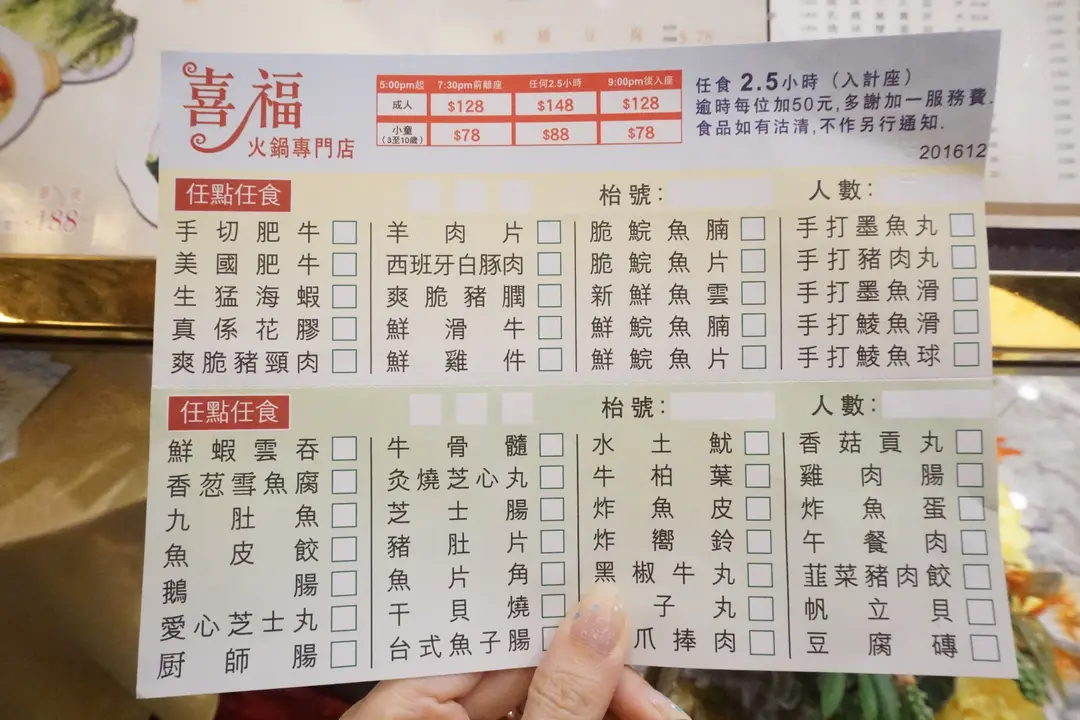 喜福
火鍋專門店
5:00pm起 7:30pm前離座 任何2.5小時 9:00pm後入座
成人 $128 $148 $128
小童 $78 $88 $78
(3至10歲)
任食 2.5小時（入計座）
逾時每位加50元,多謝加一服務費.
食品如有沽清,不作另行通知.
201612
任點任食 枱號: 人數:
手切肥牛 羊肉片 脆鯇魚腩 手打墨魚丸
美國肥牛 西班牙白豚肉 脆鯇魚片 手打豬肉丸
生猛海蝦 爽脆豬膶 新鮮魚雲 手打墨魚滑
真係花膠 鮮滑牛 鮮鯇魚腩 手打鯪魚滑
爽脆豬頸肉 鮮雞件 鮮鯇魚片 手打鯪魚球
任點任食 枱號: 人數:
鮮蝦雲吞 牛骨髓 水土魷 香菇貢丸
香葱雪魚腐 灸燒芝心丸 牛柏葉 雞肉腸
九肚魚 芝士腸 炸魚皮 炸魚蛋
魚皮餃 豬肚片 炸嚮鈴 午餐肉
鵝腸 魚片角 黑椒牛丸 韮菜豬肉餃
愛心芝士丸 干貝燒 子丸 帆立貝
厨師腸 台式魚子腸 爪捧肉 豆腐磚
$78
188